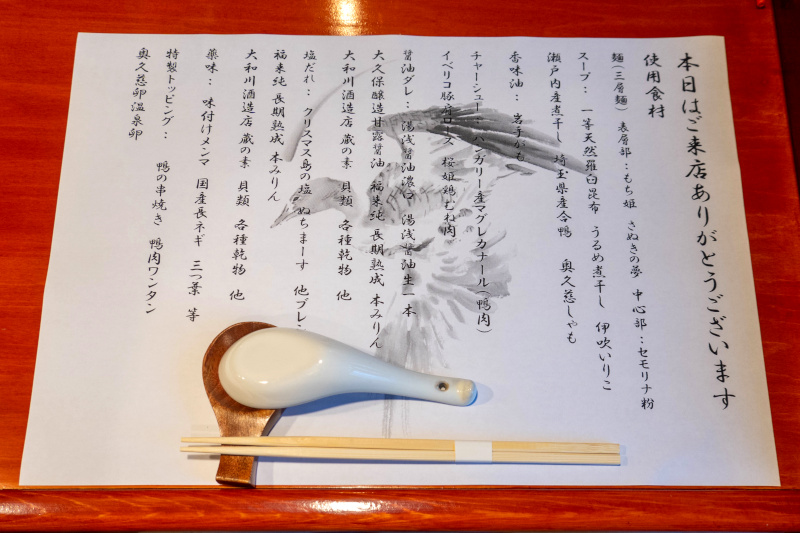 本日はご来店ありがとうございます
使用食材
麺(三層麺) 表層部:もち姫 さぬきの夢 中心部:セモリナ粉
スープ: 一等天然羅臼昆布 うるめ煮干し 伊吹いりこ
瀬戸内産煮干し 埼玉県産合鴨 奥久慈しゃも
香味油: 岩手がも
チャーシュー: ハンガリー産マグレカナール(鴨肉)
イベリコ豚肩ロース 桜姫鶏むね肉
醤油ダレ: 湯浅醤油濃口 湯浅醤油生一本
大久保醸造甘露醤油 福来純 長期熟成 本みりん
大和川酒造店 蔵の素 貝類 各種乾物 他
塩だれ: クリスマス島の塩 ぬちまーす 他ブレン
福来純 長期熟成 本みりん
大和川酒造店 蔵の素 貝類 各種乾物 他
薬味: 味付けメンマ 国産長ネギ 三つ葉 等
特製トッピング: 鴨の串焼き 鴨肉ワンタン
奥久慈卵温泉卵